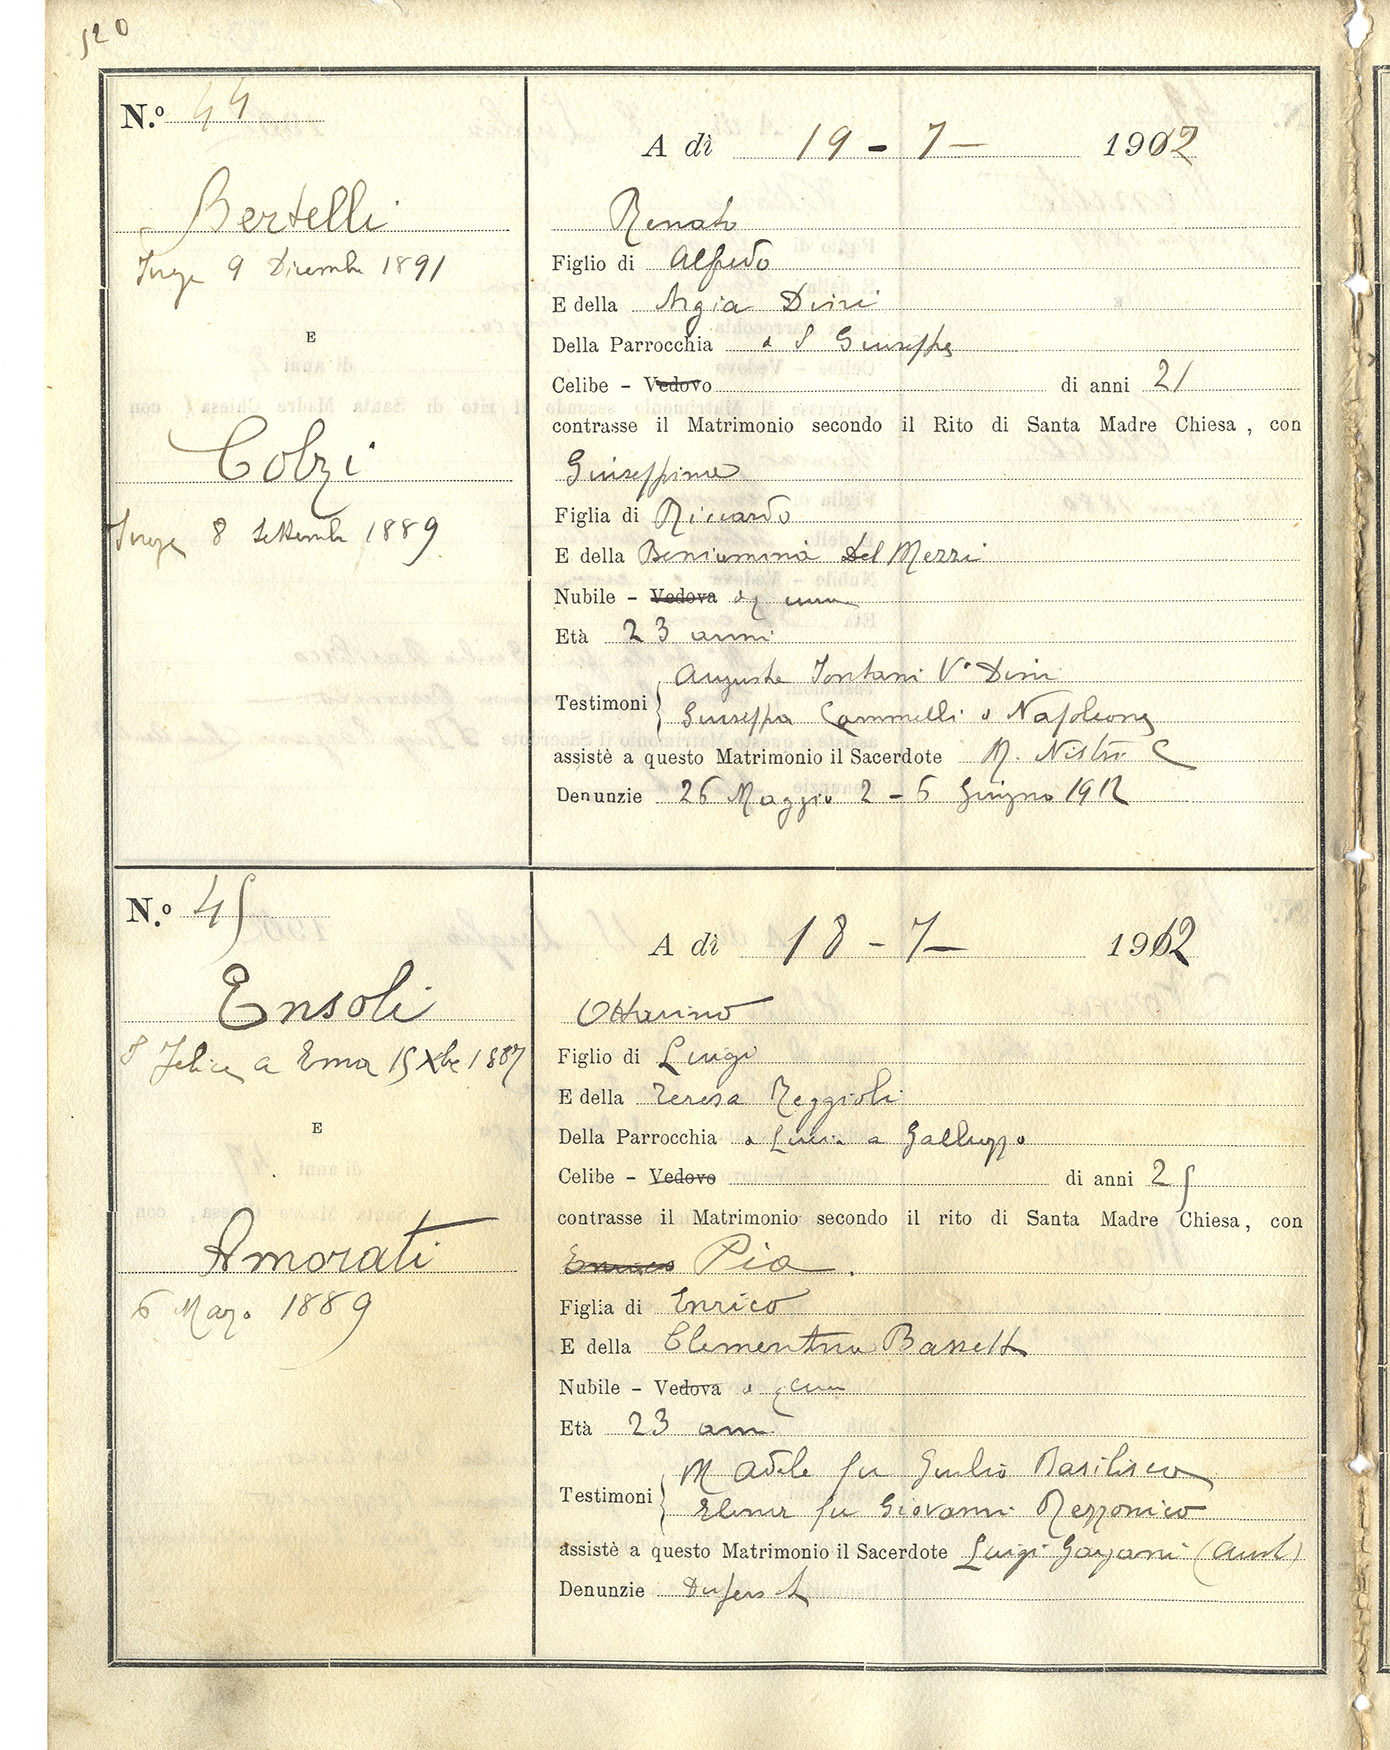 520
N.º 44
A dì 19 - 7 - 1912
Bertelli
Renato
9 Dicembre 1891
Figlio di Alfredo
E della Argia Dini
E
Della Parrocchia S Giuseppe
Celibe - Vedovo di anni 21
contrasse il Matrimonio secondo il Rito di Santa Madre Chiesa, con
Colzi
Giuseppina
8 Settembre 1889
Figlia di Riccardo
E della Beniamina Del Mezzi
Nubile - Vedova
Età 23 anni
Testimoni
Fontani Vº Dini
Giuseppe Cammelli Napoleone
assistè a questo Matrimonio il Sacerdote N. Nistri C
Denunzie 26 Maggio 2 - 6 Giugno 1912
N.º 45
A dì 18 - 7 - 1912
Ensoli
Ottavino
S Felice a Ema 15 Xbe 1887
Figlio di Luigi
E della Teresa Reggioli
E
Della Parrocchia a Galluzzo
Celibe - Vedovo di anni 25
contrasse il Matrimonio secondo il rito di Santa Madre Chiesa, con
Amorati
Pia.
6 Marzo 1889
Figlia di Enrico
E della Clementina Bassetti
Nubile - Vedova
Età 23 anni
Testimoni
M Adele fu Giulio Basilisco
fu Giovanni Rezzonico
assistè a questo Matrimonio il Sacerdote Luigi
Denunzie